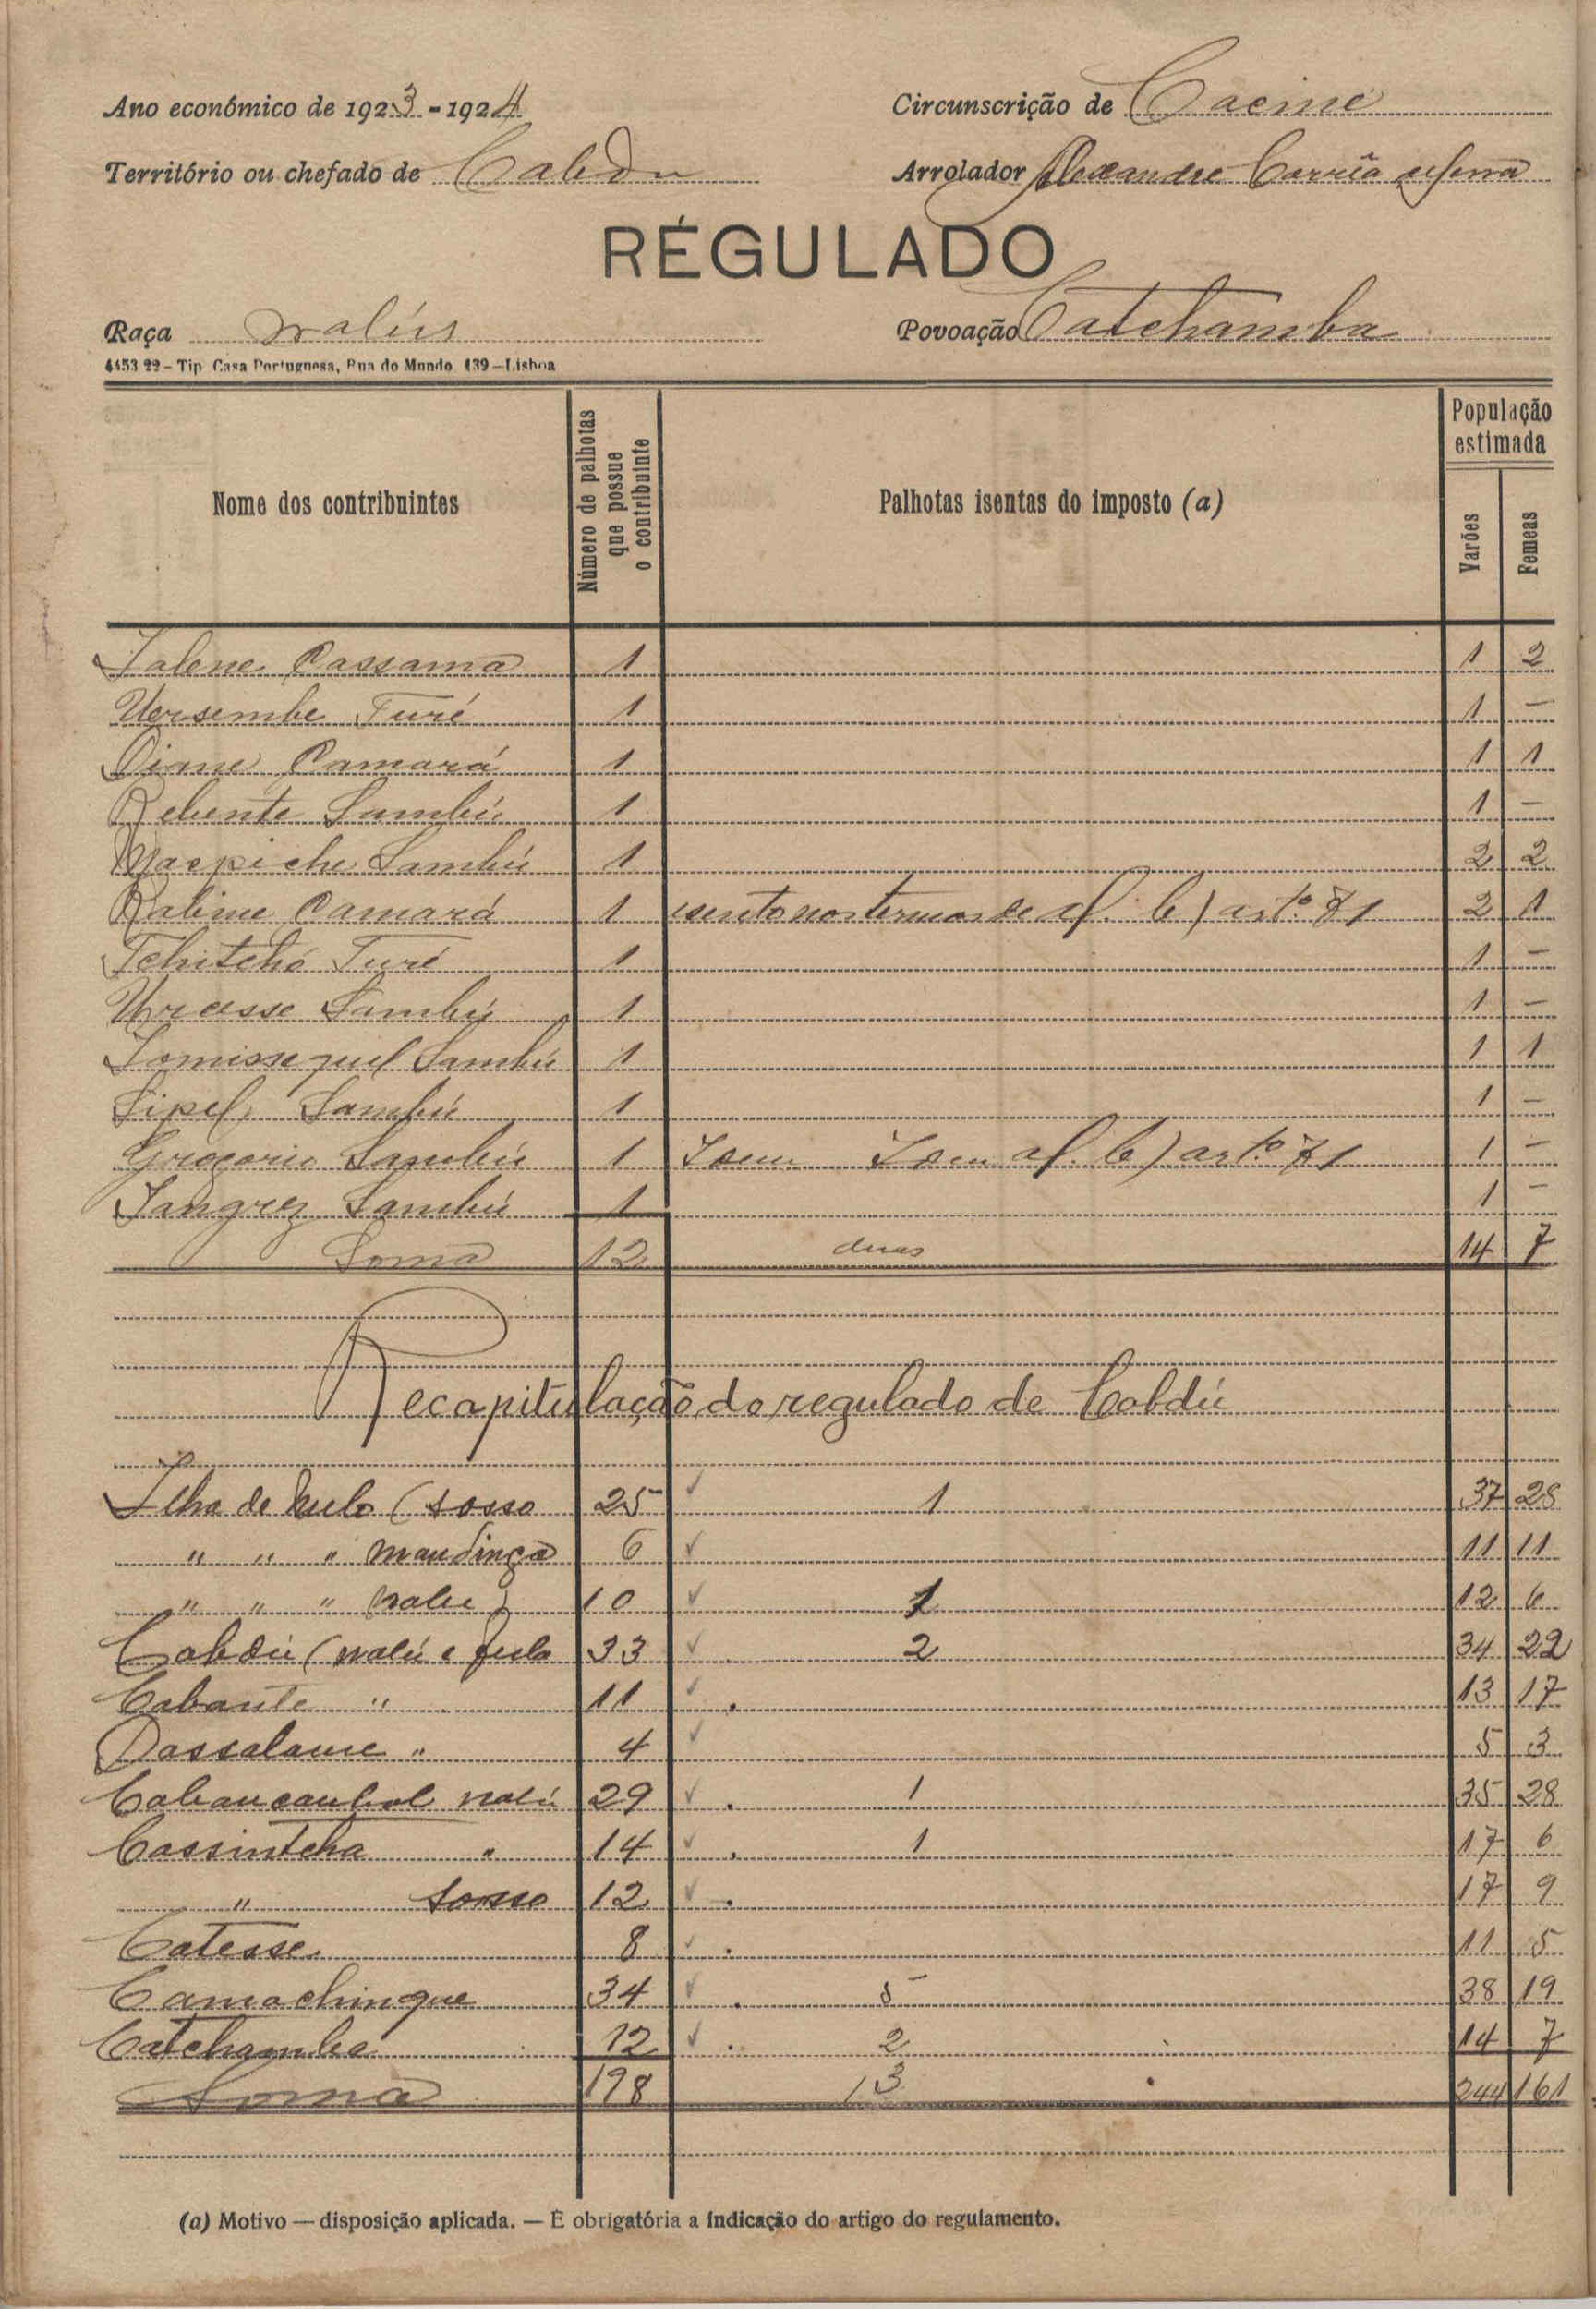 Ano económico de 1923-1924
Circunscrição de Cacine
Território ou chefado de Cabedu
Arrolador Alexandre Corrêa
REGULADO
Raça nalús
Povoação Catchamba
4453 22 – Tip. Casa Portuguesa, Rua do Mundo, 139 – Lisboa
Nome dos contribuintes
Número de palhotas que possue o contribuinte
Palhotas isentas do imposto (a)
População estimada
Varões
Femeas
Cassama 1 1 2
Turé 1 1 –
Camará 1 1 1
Sambú 1 1 –
Sambú 1 2 2
Camará 1 isento nos termos de al. b) artº 81 2 1
Tchitchó Turé 1 1 –
Sambú 1 1 –
Sambú 1 1 1
Sipel Sambú 1 1 –
Gregorio Sambú 1 Idem Idem al. b) artº 71 1 –
Sambú 1 1 –
Soma 12 duas 14 7
Recapitulação do regulado de Cabdú
Ilha de Melo (sosso 25 ✓ 1 37 28
" " " mandinga 6 ✓ 11 11
" " " nalu) 10 ✓ 1 12 6
Cabdú (nalú e fula 33 ✓ 2 34 22
Cabante " 11 ✓ 13 17
Dassalame " 4 ✓ 5 3
nalú 29 ✓ 1 35 28
Cassintcha " 14 ✓ 1 17 6
" sosso 12 ✓ 17 9
Catesse 8 ✓ 11 5
Camachingue 34 ✓ 5 38 19
Catchamba 12 ✓ 2 14 7
Soma 198 13 244 161
(a) Motivo — disposição aplicada. — É obrigatória a indicação do artigo do regulamento.